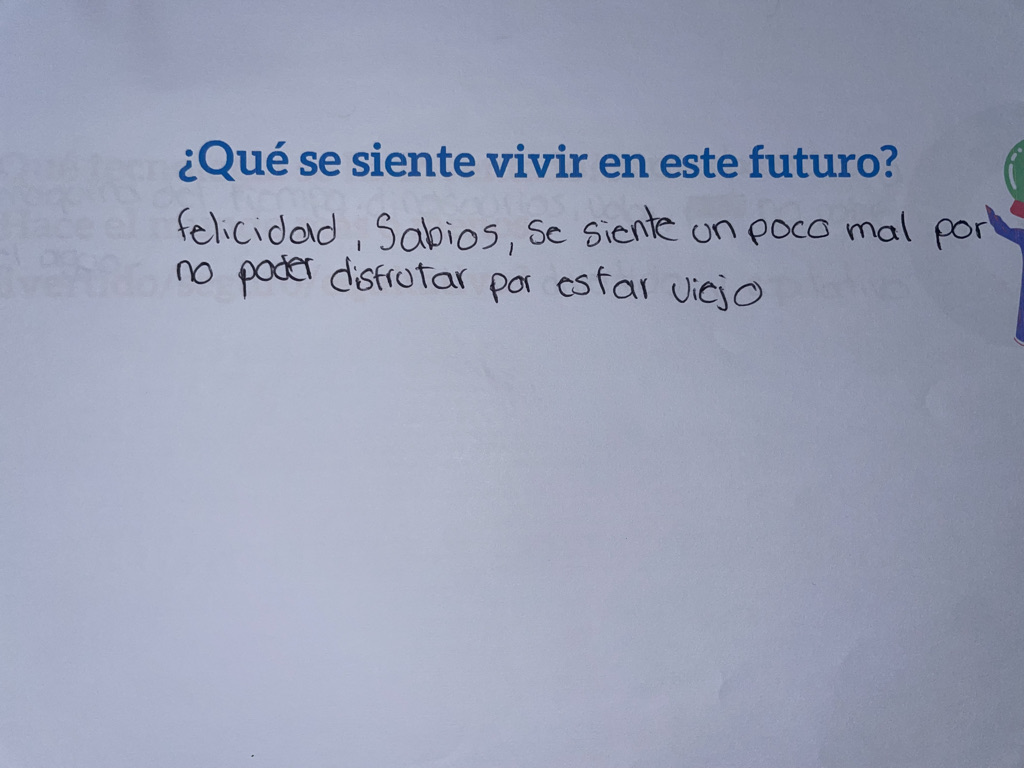 ¿Qué se siente vivir en este futuro?
felicidad, Sabios, se siente un poco mal por
no poder disfrutar por estar viejo